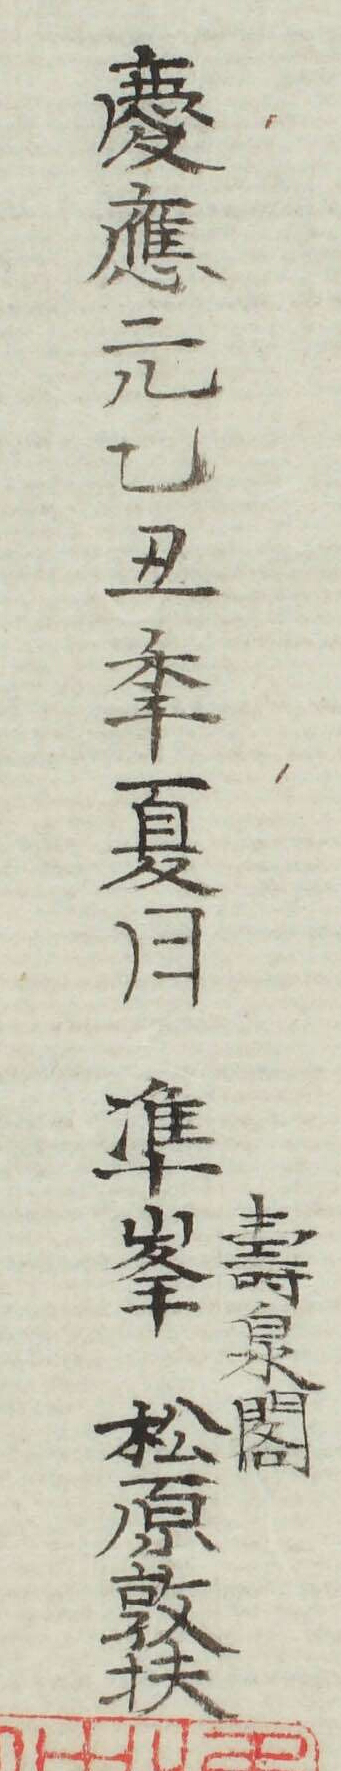 慶應元乙丑季夏月　準峯　松原敦扶
壽泉閣